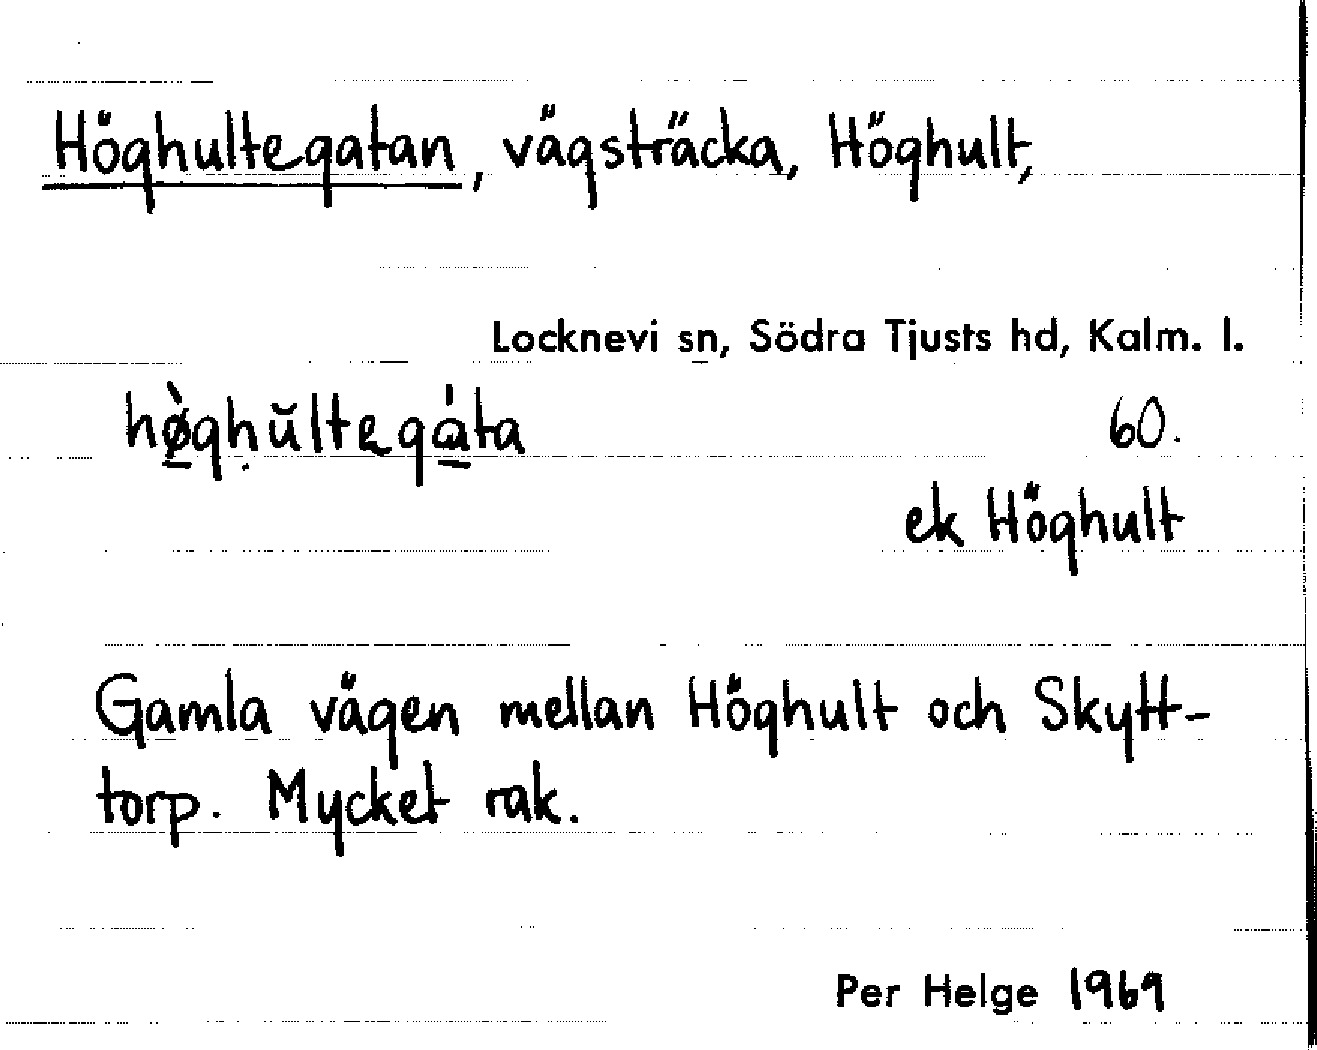 Höghultegatan, vägsträcka, Höghult,
Locknevi sn, Södra Tjusts hd, Kalm. l.
hø̠̀gḥŭltega̠̍ta 60.
ek Höghult
Gamla vägen mellan Höghult och Skytt-
torp. Mycket rak.
Per Helge 1969